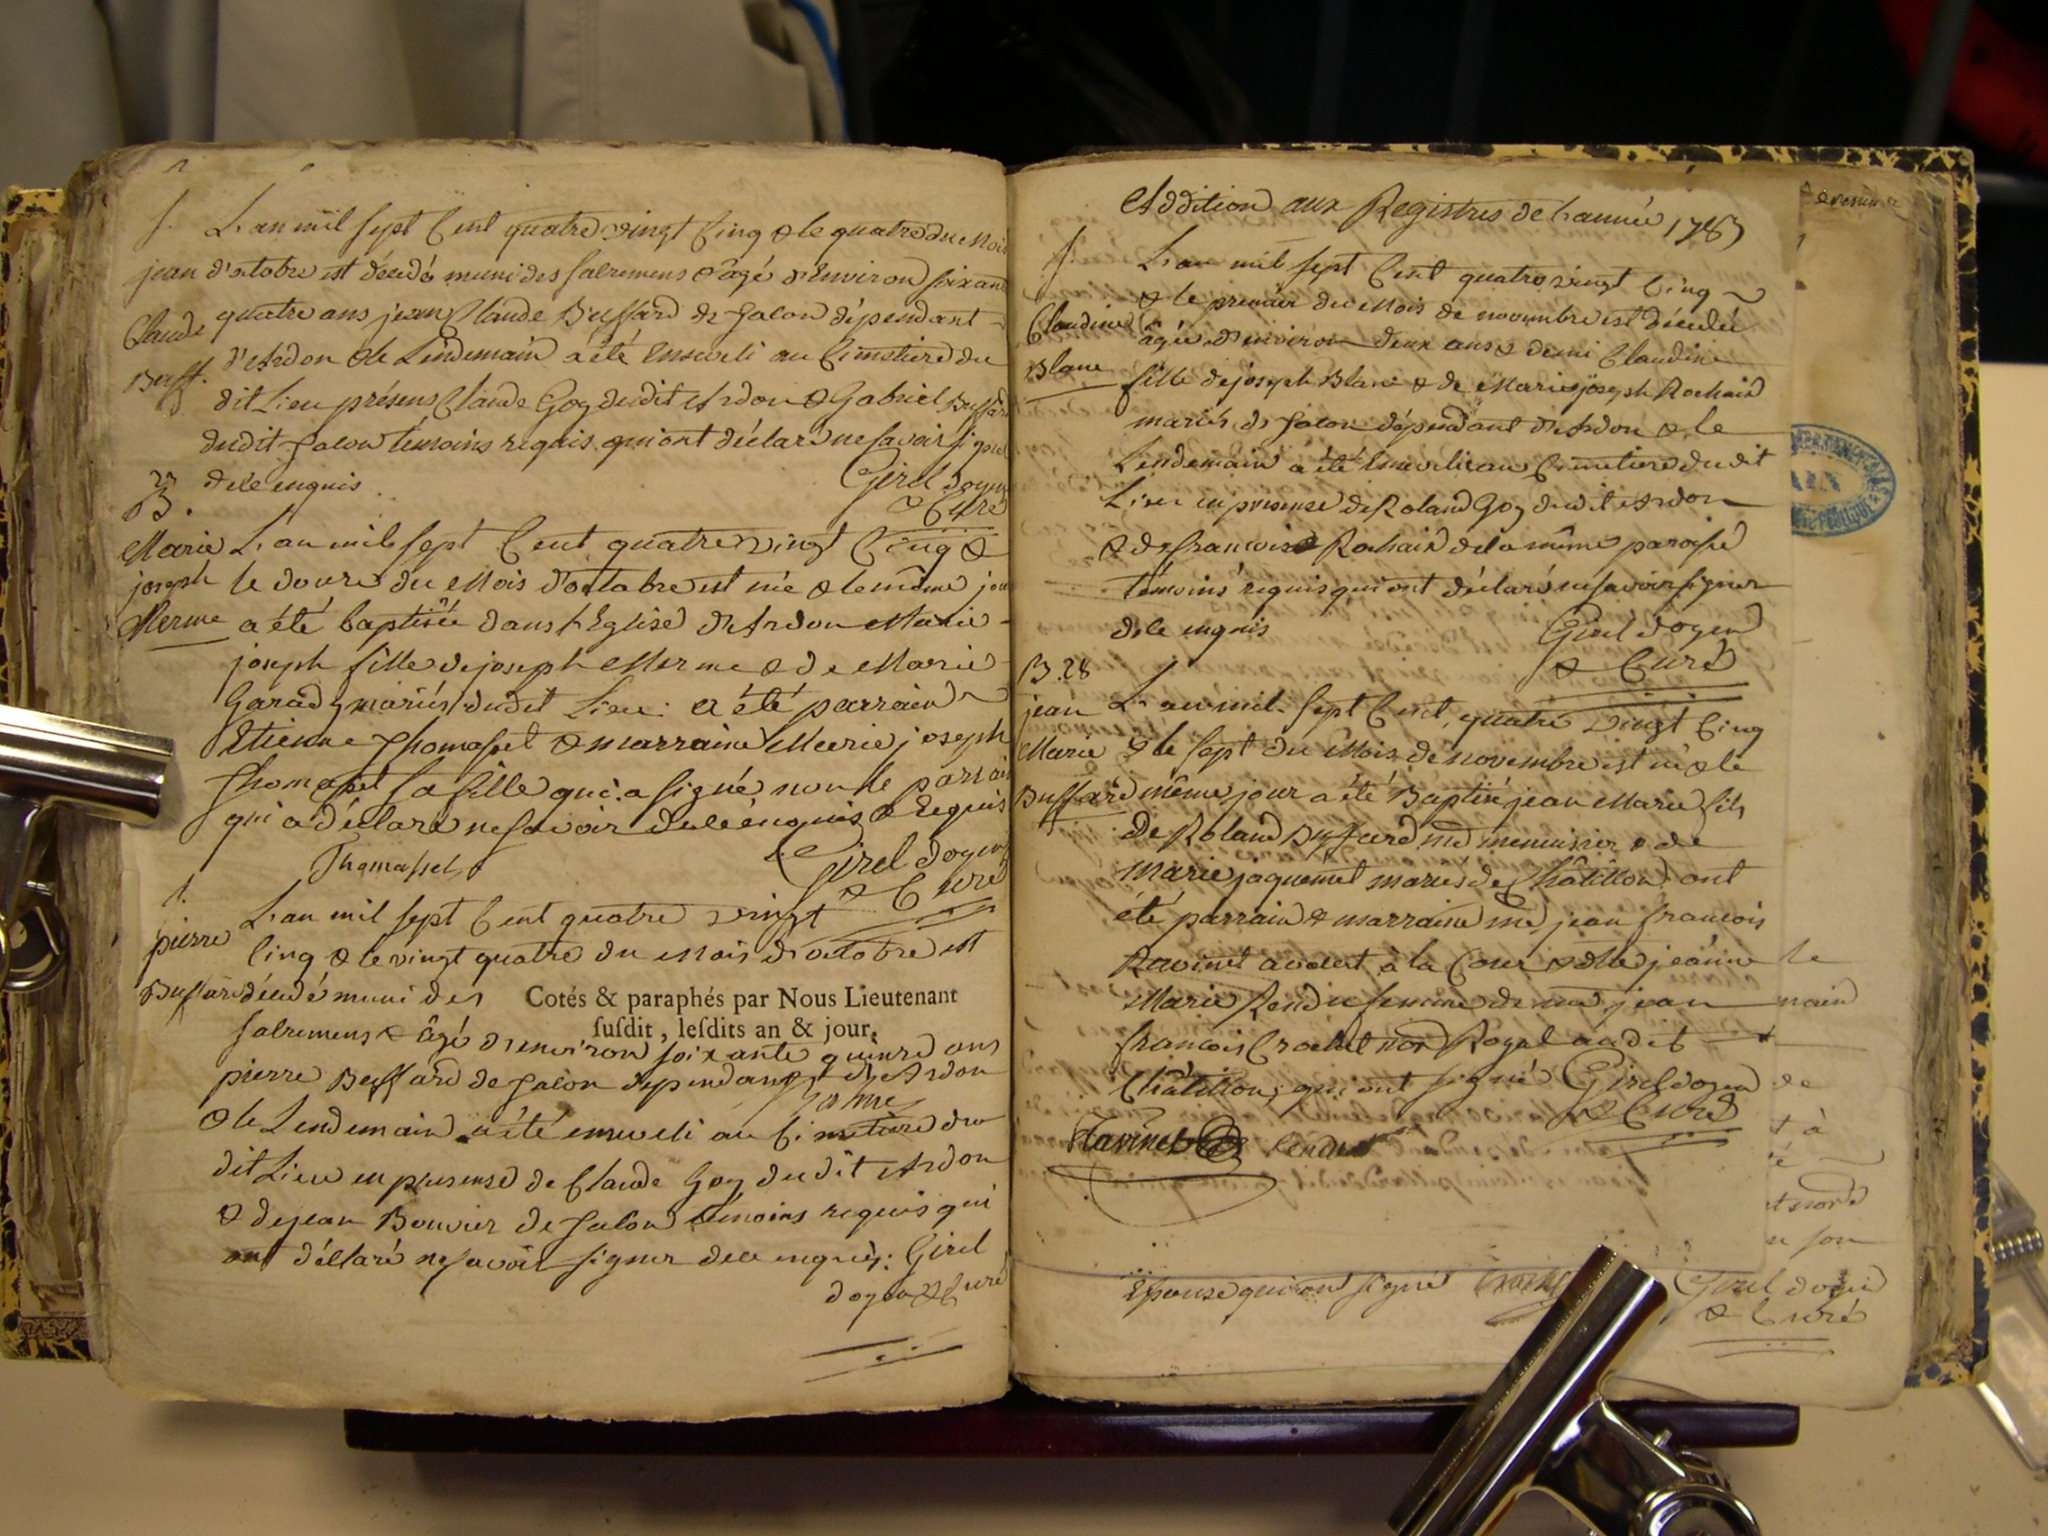 S.
L'an mil sept Cent quatre vingt Cinq & le quatre du Mois
jean d'octobre est décédé muni des sacremens & âgé d'Environ soixante
Claude quatre ans jean Claude Buffard de Jalon dépendant
Buff. d'Ardon & le Lindemain a été Enseveli au Cimetiere du
dit Lieu présens Claude Goy dudit Ardon & Gabriel Buffard
dudit Jalon témoins requis qui ont déclaré ne savoir signer
de ce enquis
Girel doyen
& Curé
B.
Marie L'an mil sept Cent quatre vingt Cinq &
joseph le douze du Mois d'octobre est née & le même jour
Merme a été baptisée dans l'Eglise d'Ardon Marie
joseph fille de joseph Merme & de Marie
mariés dudit Lieu: a été parrain
Etienne Thomasset & marraine Marie joseph
Thomasset sa fille qui a signé non le parrain
qui a déclaré ne savoir de ce enquis & Requis
Thomasset
Girel doyen
& Curé
S.
L'an mil sept Cent quatre vingt
pierre Cinq & le vingt quatre du Mois d'octobre est
Buffard décédé muni des
Cotés & paraphés par Nous Lieutenant
susdit, lesdits an & jour.
sacremens & âgé d'environ soixante quinze ans
pierre Buffard de Jalon dépendant d'Ardon
& le Lendemain a été enseveli au Cimetiere du
dit Lieu en presense de Claude Goy dudit Ardon
& de jean Bouvier de Jalon témoins requis qui
ont déclaré ne savoir signer de ce enquis: Girel
doyen & Curé
Addition aux Registres de l'année 1785
S.
L'an mil sept Cent quatre vingt Cinq
& le premier du Mois de novembre est décédée
Claudine âgée d'environ deux ans & demi Claudine
Blanc fille de joseph Blanc & de Marie joseph Rochaix
mariés de Jalon dépendant d'Ardon & le
Lendemain a été Ensevelie au Cimetiere dudit
Lieu en presense de Roland Goy dudit Ardon
& de francois Rochaix de la même paroisse
témoins requis qui ont déclaré ne savoir signer
de ce enquis
Girel doyen
& Curé
B. 28
jean L'an mil Sept Cent quatre vingt Cinq
Marie & le sept du Mois de novembre est né & le
Buffard même jour a été Baptisé jean Marie fils
de Roland Buffard md menuisier & de
Marie jaquemet mariés de Châtillon: ont
été parrain & marraine me jean francois
Ravinet avocat à la Cour & dlle jeanne
Marie Rendu femme de me jean
francois Crochet nore Royal audit
Châtillon; qui ont signé Girel doyen
& Curé
Ravinet Rendu
le
main
de
t à
son
Epouse qui ont signé Girel doyen
& Curé